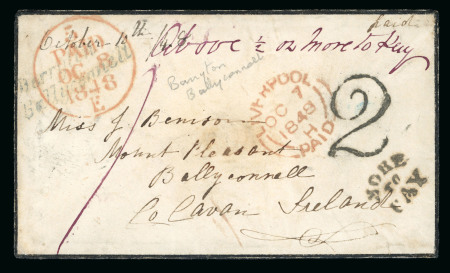 October 1st
Above ½ oz More To Pay
Paid
PAID
OC 8
1848
E
LIVERPOOL
OC 7
1848
H
PAID
Ballyconnell
Miss J. Benison
Mount Pleasant
Ballyconnell
Co Cavan Ireland
2
MORE
TO
PAY